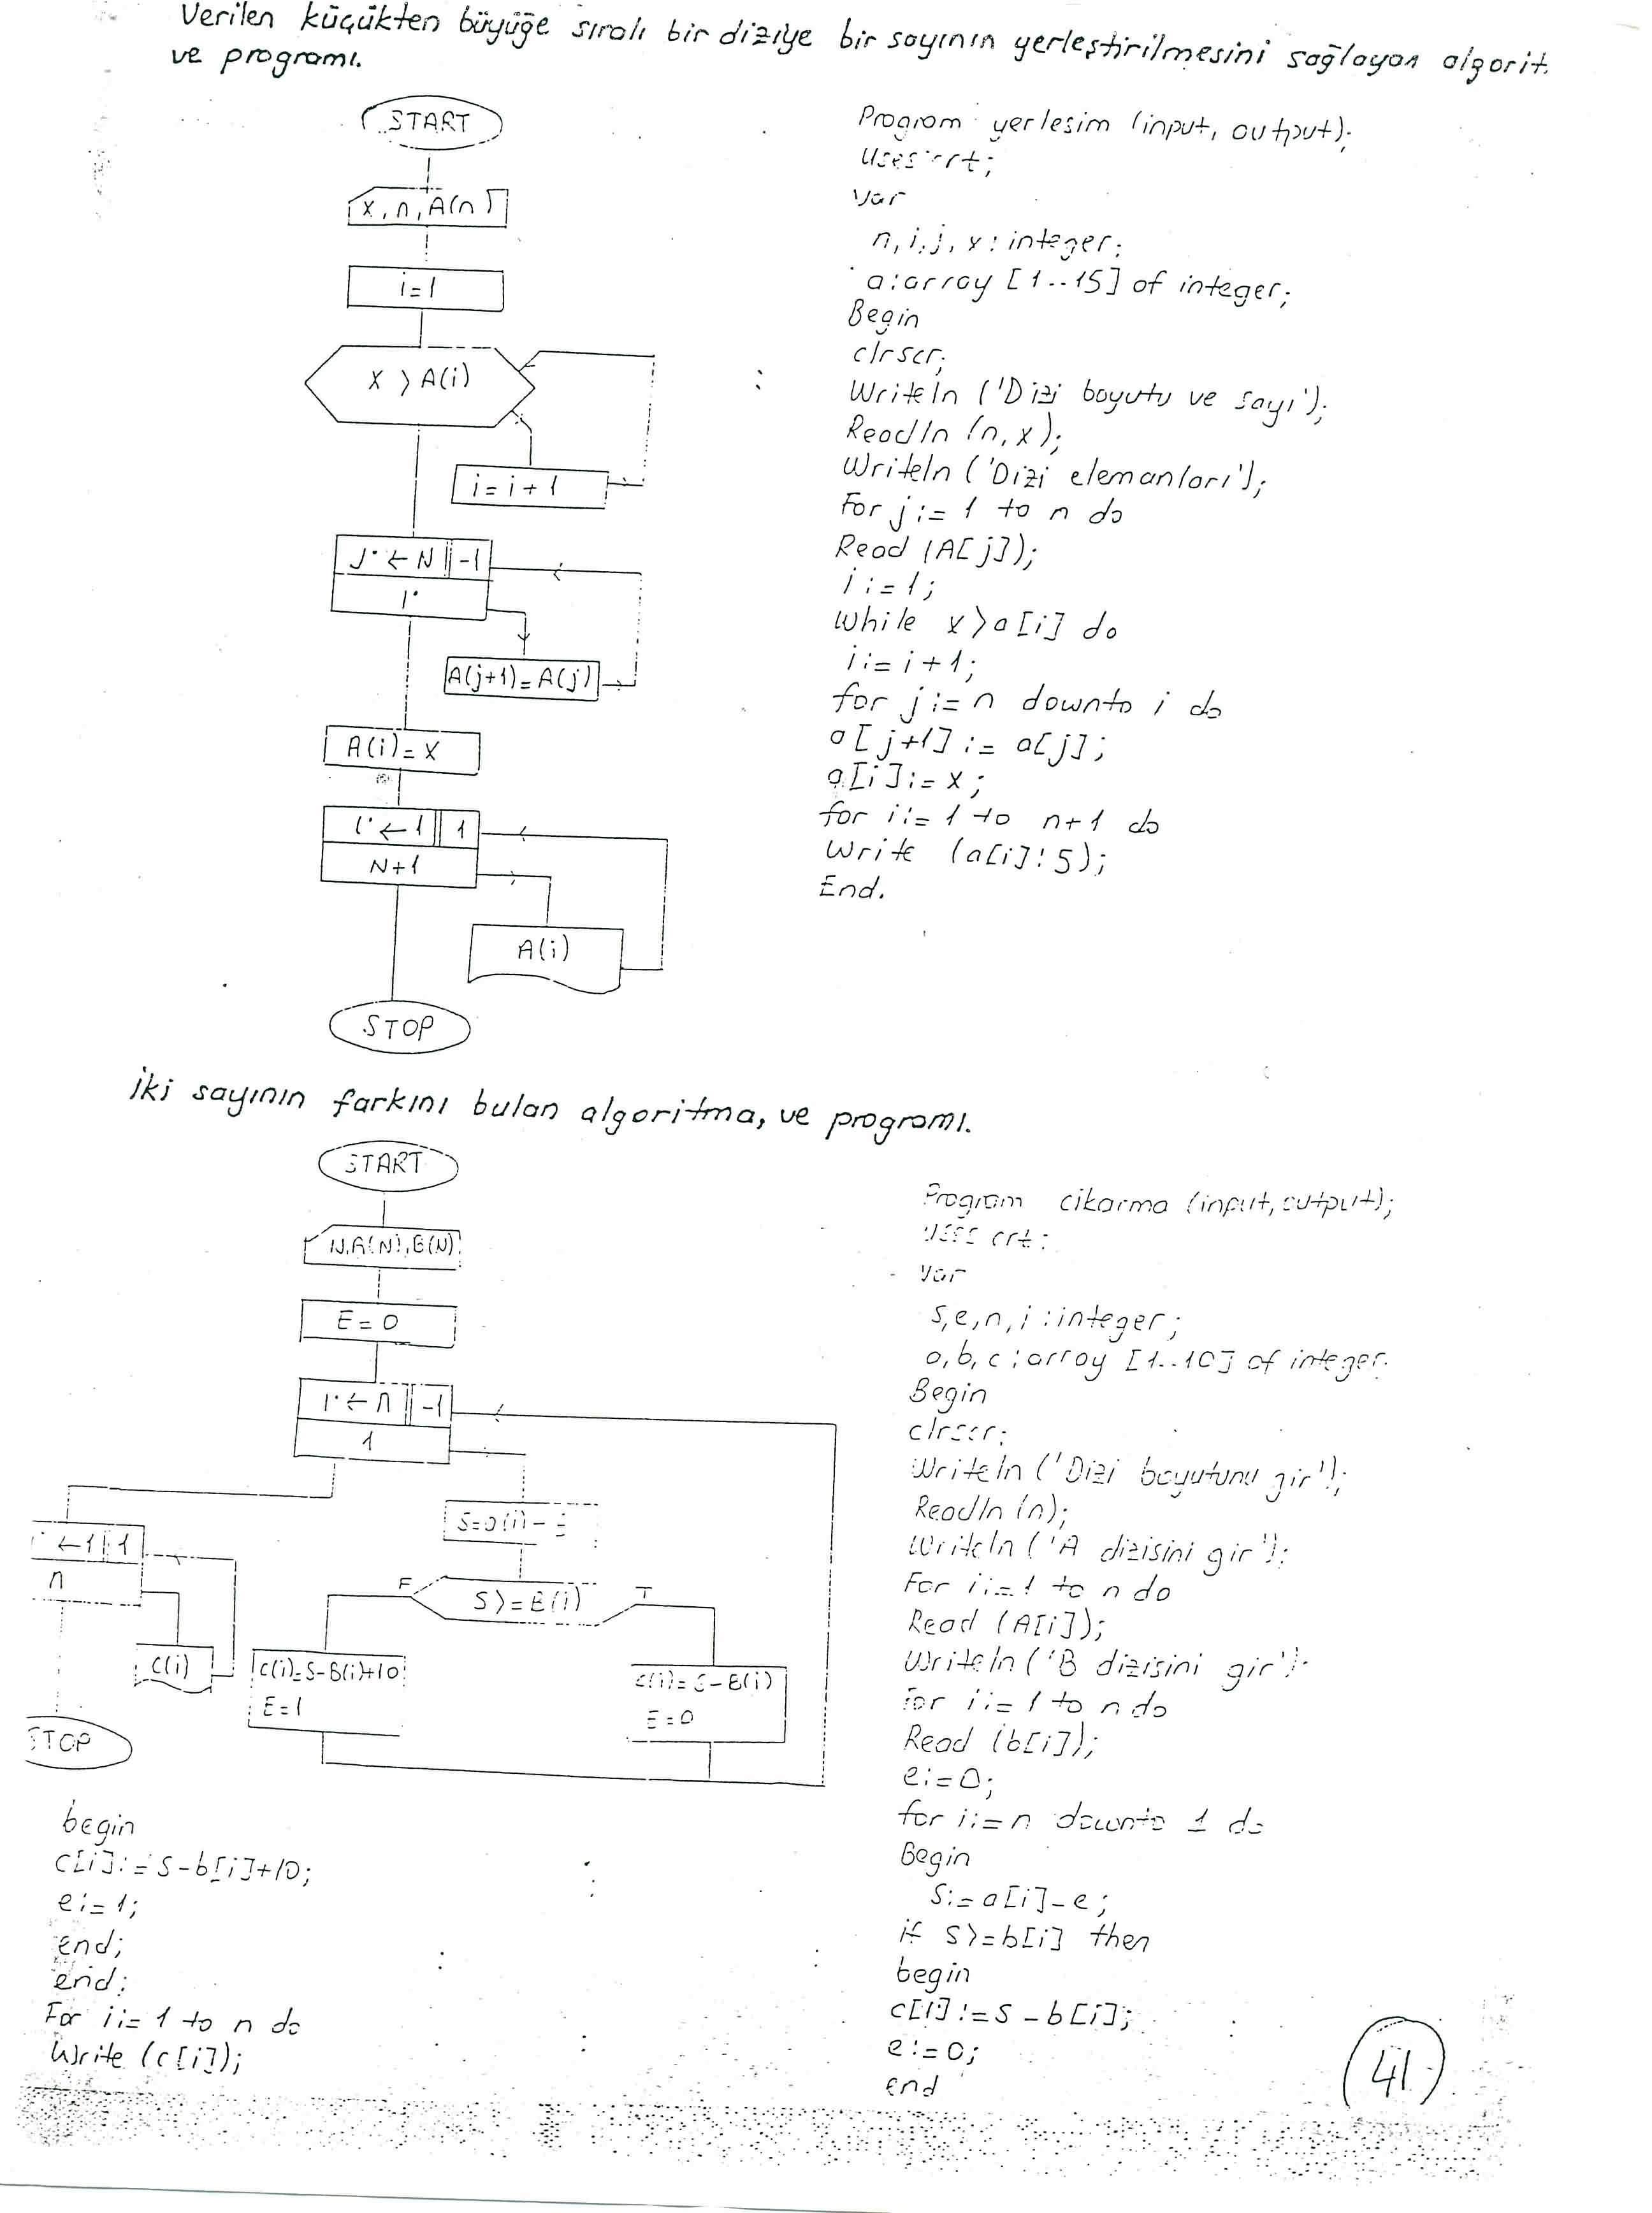 Verilen küçükten büyüğe sıralı bir diziye bir sayının yerleştirilmesini sağlayan algorit.
ve programı.
START
X, n, A(n)
i=1
X > A(i)
i=i+1
J ← N -1
i
A(j+1)=A(j)
A(i)=X
i ← 1 1
N+1
A(i)
STOP
Program yerlesim (input, output);
Uses crt;
Var
n,i,j,x:integer;
a:array [1..15] of integer;
Begin
clrscr;
Writeln ('Dizi boyutu ve sayı');
Readln (n,x);
Writeln ('Dizi elemanları');
For j:= 1 to n do
Read (A[j]);
i:=1;
While x>a[i] do
i:=i+1;
for j:=n downto i do
a[j+1]:= a[j];
a[i]:=x;
for i:= 1 to n+1 do
Write (a[i]:5);
End.
İki sayının farkını bulan algoritma, ve programı.
START
N,A(N),B(N)
E=0
i ← n -1
1
S=a(i)-E
F S>=B(i) T
← 1 1
n
C(i)
STOP
C(i)=S-B(i)+10
E=1
C(i)=S-B(i)
E=0
Program cikarma (input,output);
Uses crt;
Var
s,e,n,i:integer;
a,b,c:array [1..10] of integer;
Begin
clrscr;
Writeln ('Dizi boyutunu gir');
Readln (n);
Writeln ('A dizisini gir');
For i:=1 to n do
Read (A[i]);
Writeln ('B dizisini gir');
for i:= 1 to n do
Read (b[i]);
e:=0;
for i:=n downto 1 do
Begin
S:=a[i]-e;
if S>=b[i] then
begin
c[i]:=s-b[i];
e:=0;
end
begin
c[i]:=s-b[i]+10;
e:=1;
end;
end;
For i:= 1 to n do
Write (c[i]);
41